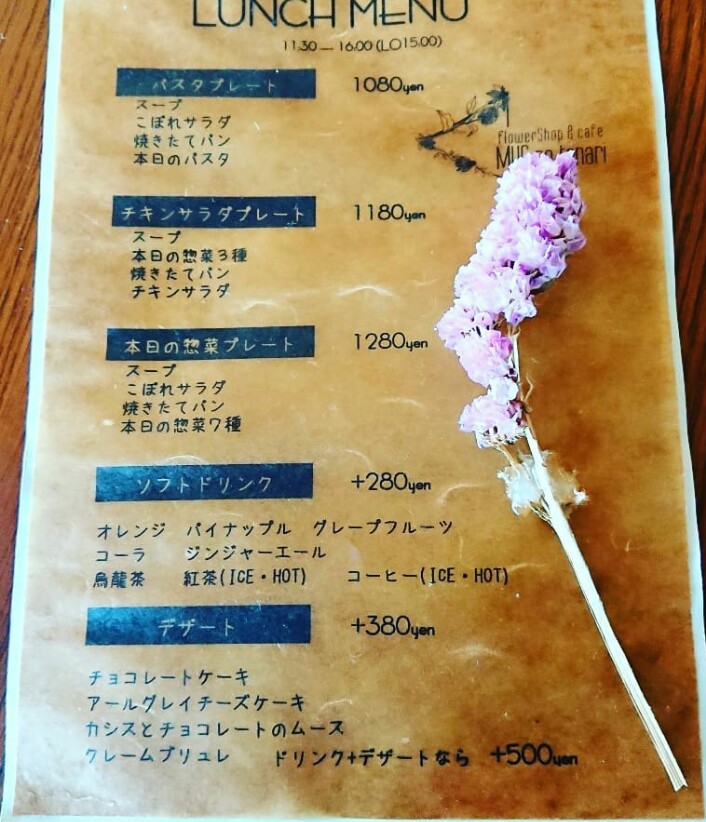 LUNCH MENU
11:30 — 16:00 (LO15:00)
パスタプレート 1080yen
スープ
こぼれサラダ
焼きたてパン
本日のパスタ
flowerShop & cafe
チキンサラダプレート 1180yen
スープ
本日の惣菜3種
焼きたてパン
チキンサラダ
本日の惣菜プレート 1280yen
スープ
こぼれサラダ
焼きたてパン
本日の惣菜7種
ソフトドリンク +280yen
オレンジ パイナップル グレープフルーツ
コーラ ジンジャーエール
烏龍茶 紅茶(ICE・HOT) コーヒー(ICE・HOT)
デザート +380yen
チョコレートケーキ
アールグレイチーズケーキ
カシスとチョコレートのムース
クレームブリュレ ドリンク+デザートなら +500yen